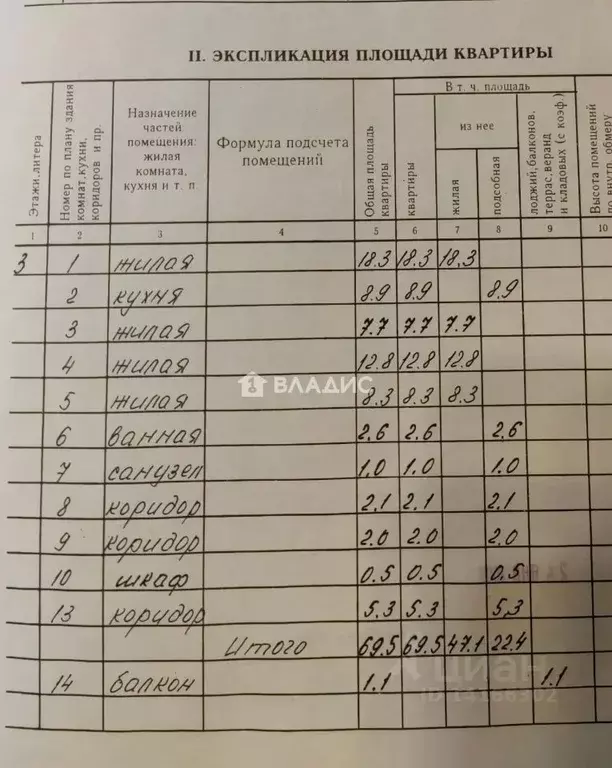 II. ЭКСПЛИКАЦИЯ ПЛОЩАДИ КВАРТИРЫ
Этажи, литера
Номер по плану здания комнат, кухни, коридоров и пр.
Назначение частей помещения: жилая комната, кухня и т. п.
Формула подсчета помещений
Общая площадь квартиры
В т. ч. площадь
квартиры
из нее
жилая
подсобная
лоджий, балконов, террас, веранд и кладовых (с коэф.)
Высота помещений по внутр. обмеру
1 2 3 4 5 6 7 8 9 10
3 1 жилая 18.3 18.3 18.3
2 кухня 8.9 8.9 8.9
3 жилая 7.7 7.7 7.7
4 жилая 12.8 12.8 12.8
5 жилая 8.3 8.3 8.3
ВЛАДИС
6 ванная 2.6 2.6 2.6
7 санузел 1.0 1.0 1.0
8 коридор 2.1 2.1 2.1
9 коридор 2.0 2.0 2.0
10 шкаф 0.5 0.5 0.5
13 коридор 5.3 5.3 5.3
Итого 69.5 69.5 47.1 22.4
14 балкон 1.1 1.1
циан